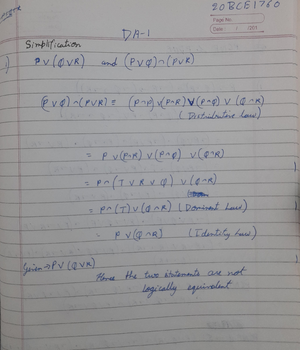 20BCE1760
Page No.
Date:
DA-1
Simplification
1) P∨(Q∨R) and (P∨Q)∧(P∨R)
(P∨Q)∧(P∨R) ≡ (P∧P)∨(P∧R)∨(P∧Q)∨(Q∧R)
(Distributive Law)
= P∨(P∧R)∨(P∧Q)∨(Q∧R)
= P∧(T∨R∨Q)∨(Q∧R)
= P∧(T)∨(Q∧R) (Dominant Law)
= P∨(Q∧R) (Identity Law)
Given → P∨(Q∨R)
Hence the two statements are not
logically equivalent